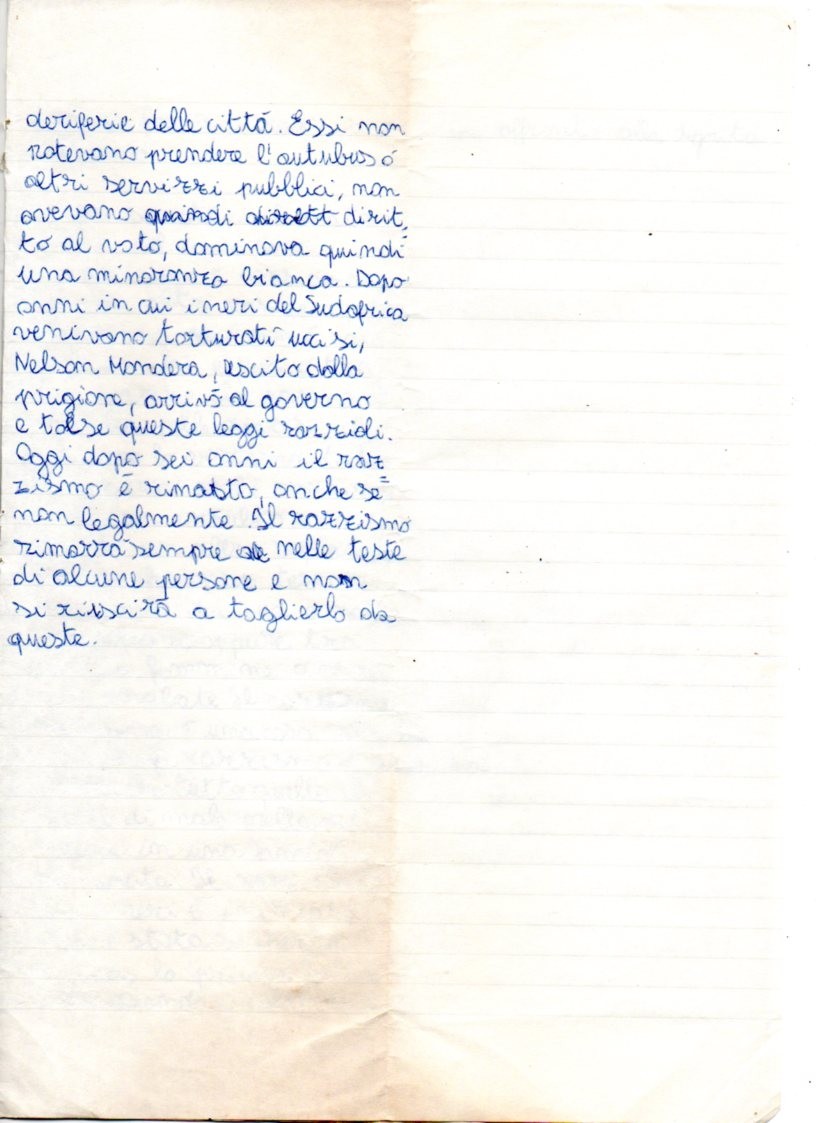 deriferie delle cittá. Essi non
potevano prendere l'autubus o
altri servizzi pubblici, non
avevano quindi dirit=
to al voto, dominava quindi
una minoranza bianca. Dopo
anni in cui i neri del Sudafrica
venivano torturati uccisi,
Nelson Mondera, uscito dalla
prigione, arrivó al governo
e tolse queste leggi razziali.
Oggi dopo sei anni il raz=
zismo é rimasto, anche se
non legalmente. Il razzismo
rimarrá sempre nelle teste
di alcune persone e non
si riuscirá a toglierlo da
queste.